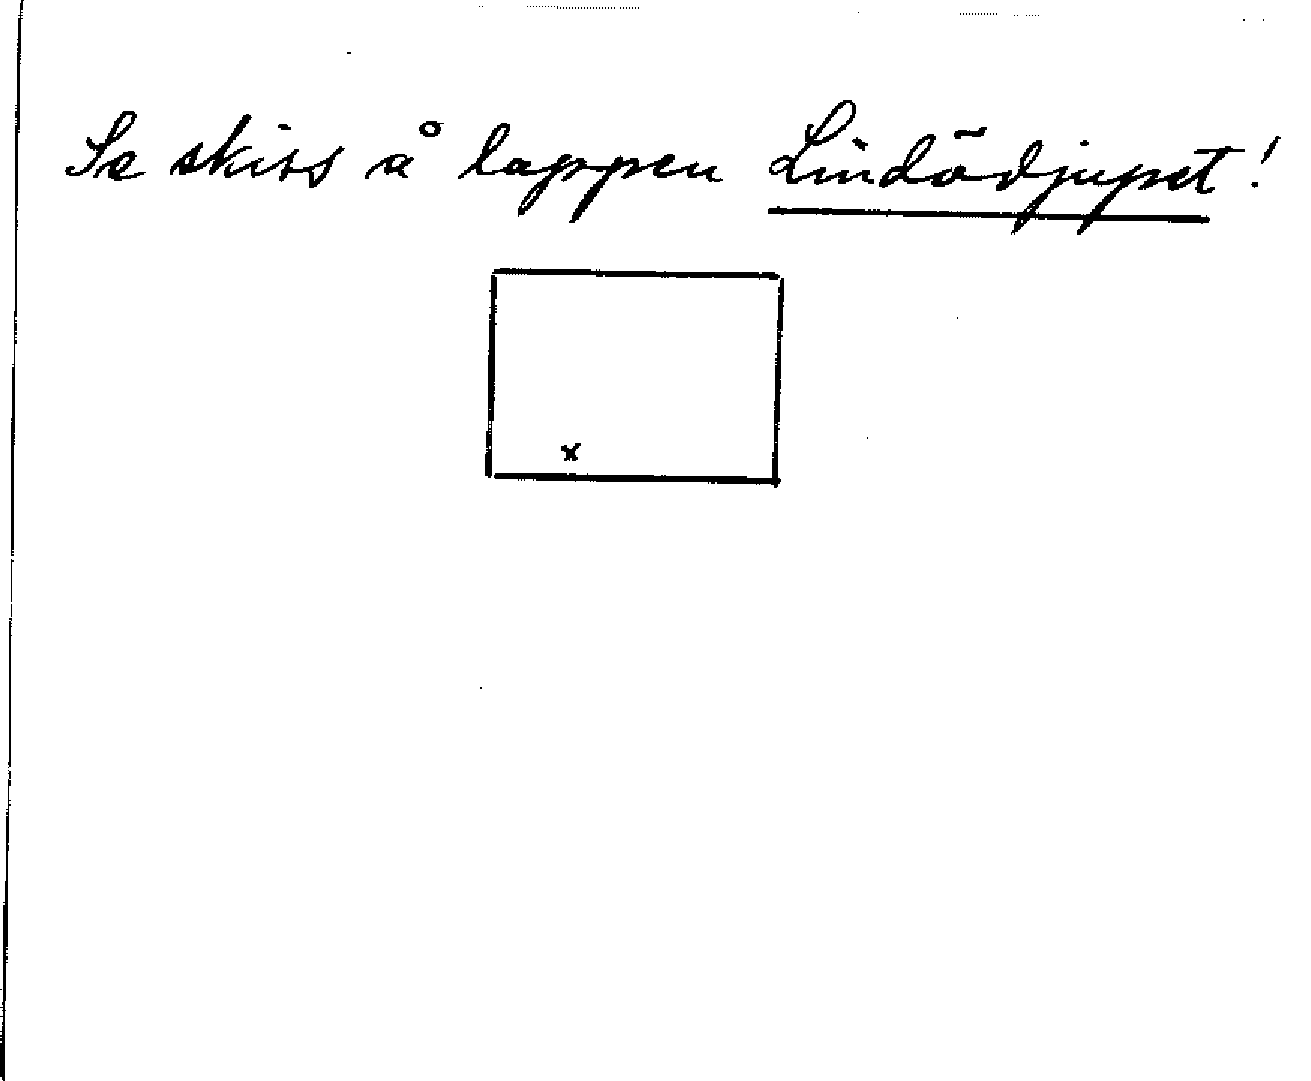 Se skiss å lappen Lindödjupet!
x